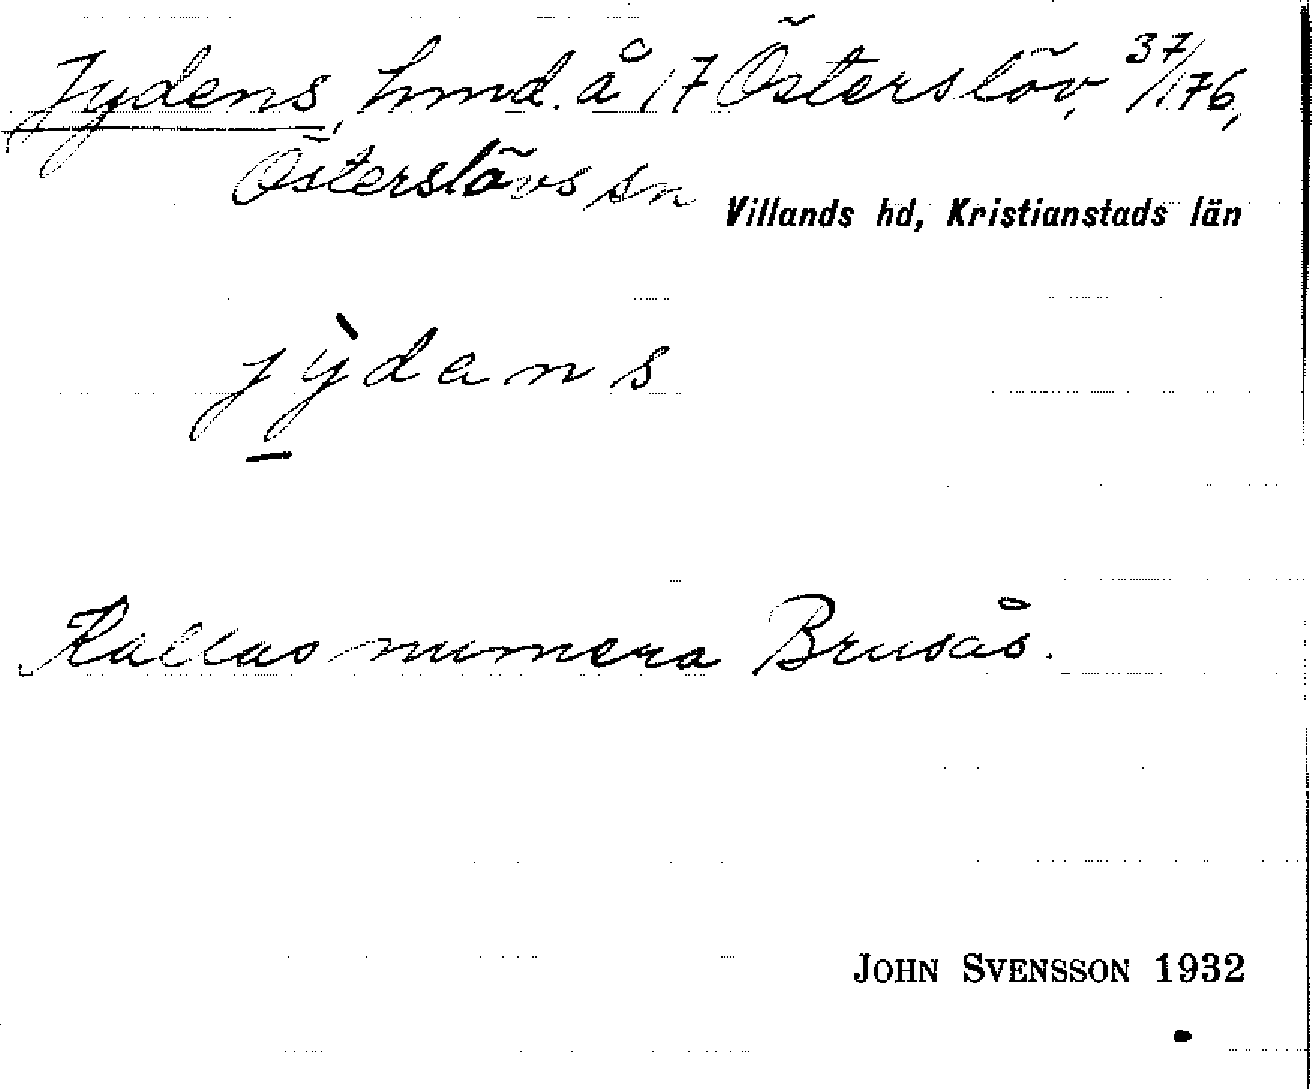 Jydens, hmd. å 17 Österslöv, 37/176,
Österslövs sn
Villands hd, Kristianstads län
jỳdans
Kallas numera Brusås.
JOHN SVENSSON 1932